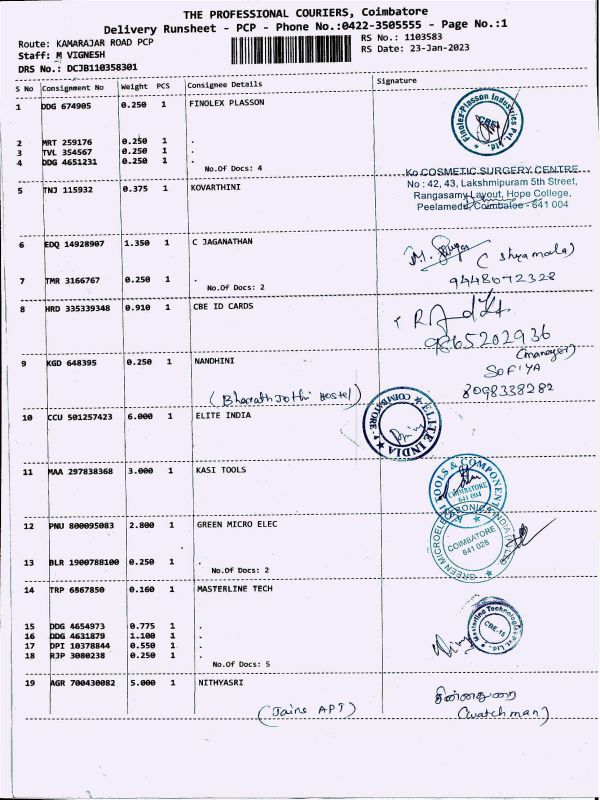 THE PROFESSIONAL COURIERS, Coimbatore
Delivery Runsheet - PCP - Phone No.:0422-3505555 - Page No.:1
Route: KAMARAJAR ROAD PCP
Staff: M VIGNESH
DRS No.: DCJB110358301
RS No.: 1103583
RS Date: 23-Jan-2023
S No Consignment No Weight PCS Consignee Details Signature
1 DDG 674905 0.250 1 FINOLEX PLASSON
Finolex-Plasson Industries Pvt. Ltd.
CBE
2 MRT 259176 0.250 1 .
3 TVL 354567 0.250 1 .
4 DDG 4651231 0.250 1 .
No.Of Docs: 4
5 TNJ 115932 0.375 1 KOVARTHINI
Ko COSMETIC SURGERY CENTRE
No : 42, 43, Lakshmipuram 5th Street,
Rangasamy Layout, Hope College,
Peelamedu, Coimbatoe - 641 004
6 EDQ 14928907 1.350 1 C JAGANATHAN
(Shyamala)
7 TMR 3166767 0.250 1 .
9448072328
No.Of Docs: 2
8 HRD 335339348 0.910 1 CBE ID CARDS
9865202936
(manager)
9 KGD 648395 0.250 1 NANDHINI
SOFIYA
8098338282
(Bharath Jothi Hostel)
10 CCU 501257423 6.000 1 ELITE INDIA
ELITE INDIA
COIMBATORE
11 MAA 297838368 3.000 1 KASI TOOLS
KASI TOOLS & COMPONENTS
COIMBATORE
641 004
12 PNU 800095083 2.800 1 GREEN MICRO ELEC
GREEN MICROELECTRONICS INDIA
COIMBATORE
641 028
13 BLR 1900788100 0.250 1 .
No.Of Docs: 2
14 TRP 6867850 0.160 1 MASTERLINE TECH
Masterline Technologies Pvt. Ltd.
CBE-15
15 DDG 4654973 0.775 1 .
16 DDG 4631879 1.100 1 .
17 DPI 10378844 0.550 1 .
18 RJP 3080238 0.250 1 .
No.Of Docs: 5
19 AGR 700430082 5.000 1 NITHYASRI
சின்னதுரை
(Jains APT)
(watchman)